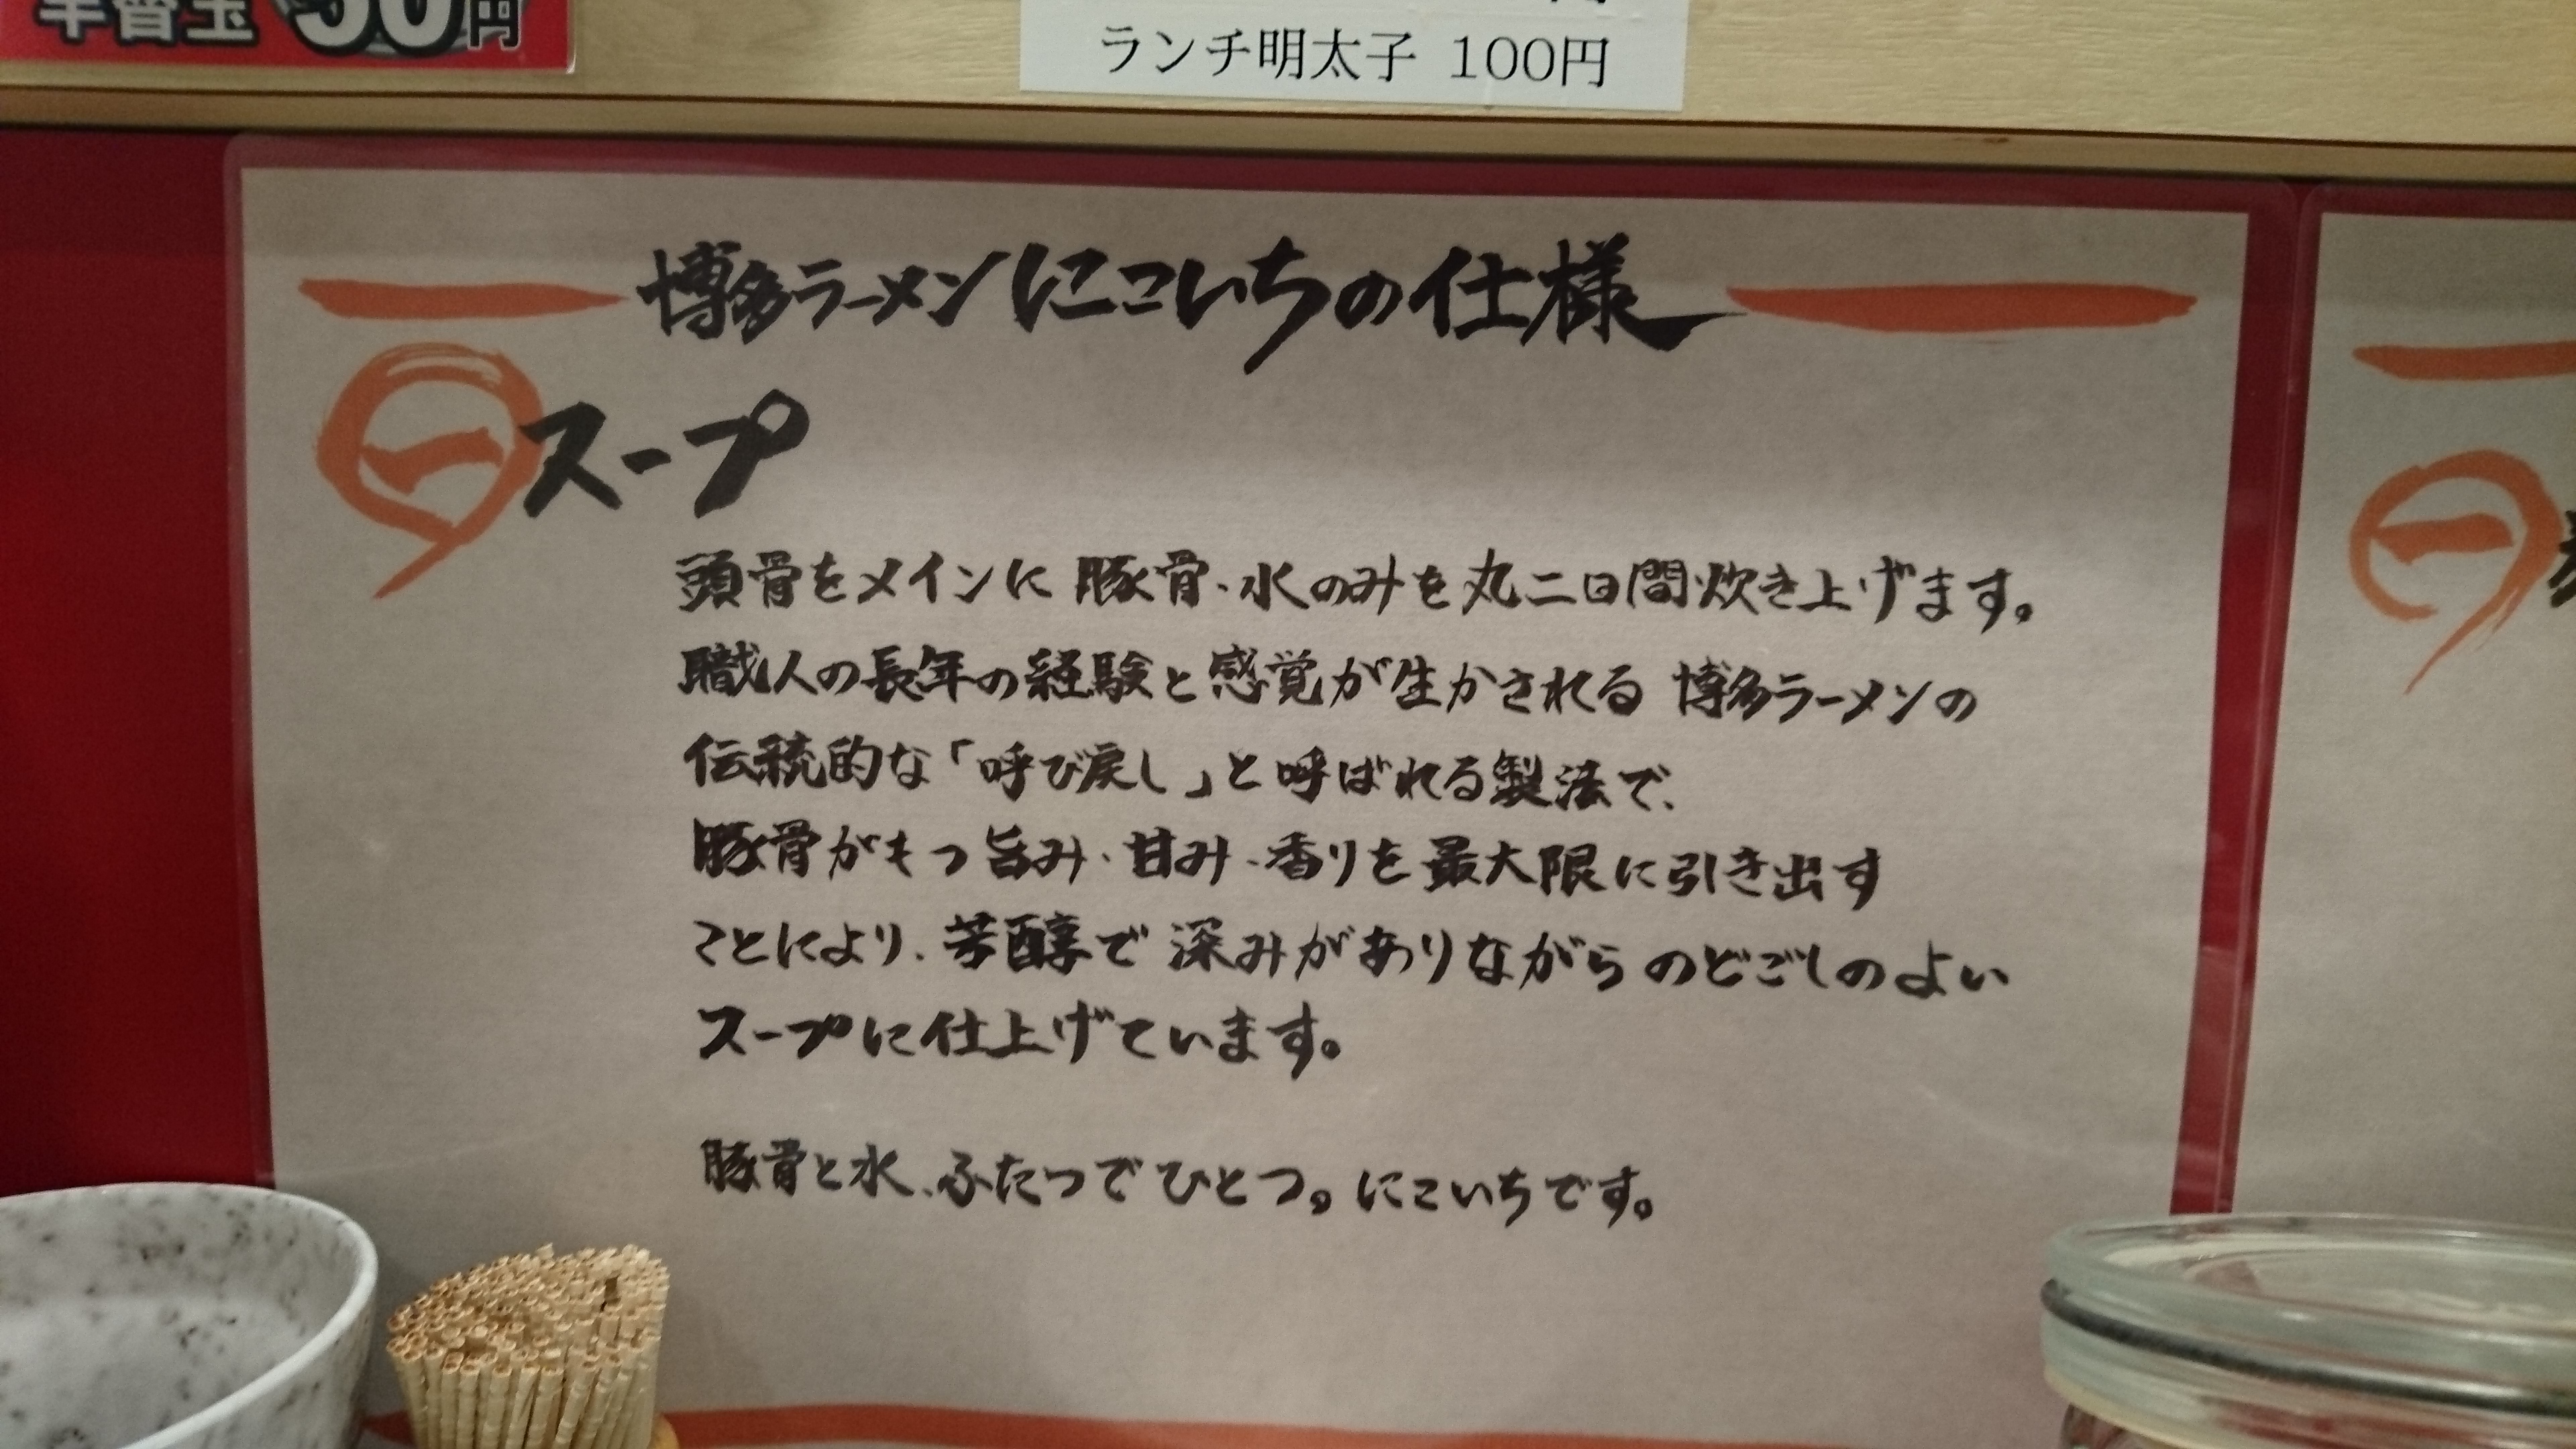 半替玉 50円
ランチ明太子 100円
博多ラーメンにこいちの仕様
スープ
頭骨をメインに 豚骨・水のみを丸二日間炊き上げます。
職人の長年の経験と感覚が生かされる 博多ラーメンの
伝統的な「呼び戻し」と呼ばれる製法で、
豚骨がもつ旨み・甘み・香りを最大限に引き出す
ことにより、芳醇で 深みがありながら のどごしのよい
スープに仕上げています。
豚骨と水、ふたつで ひとつ。にこいちです。